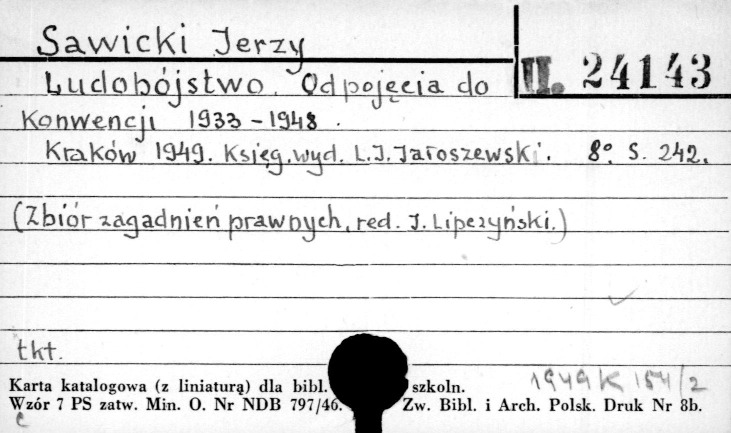 Sawicki Jerzy
II. 24143
Ludobójstwo. Od pojęcia do
Konwencji 1933 - 1948.
Kraków 1949. Księg. wyd. L.J. Jaroszewski. 8° S. 242.
(Zbiór zagadnień prawnych, red. J. Lipczyński.)
tkt.
1949 K 154/2
Karta katalogowa (z liniaturą) dla bibl. szkoln.
Wzór 7 PS zatw. Min. O. Nr NDB 797/46. Zw. Bibl. i Arch. Polsk. Druk Nr 8b.
e